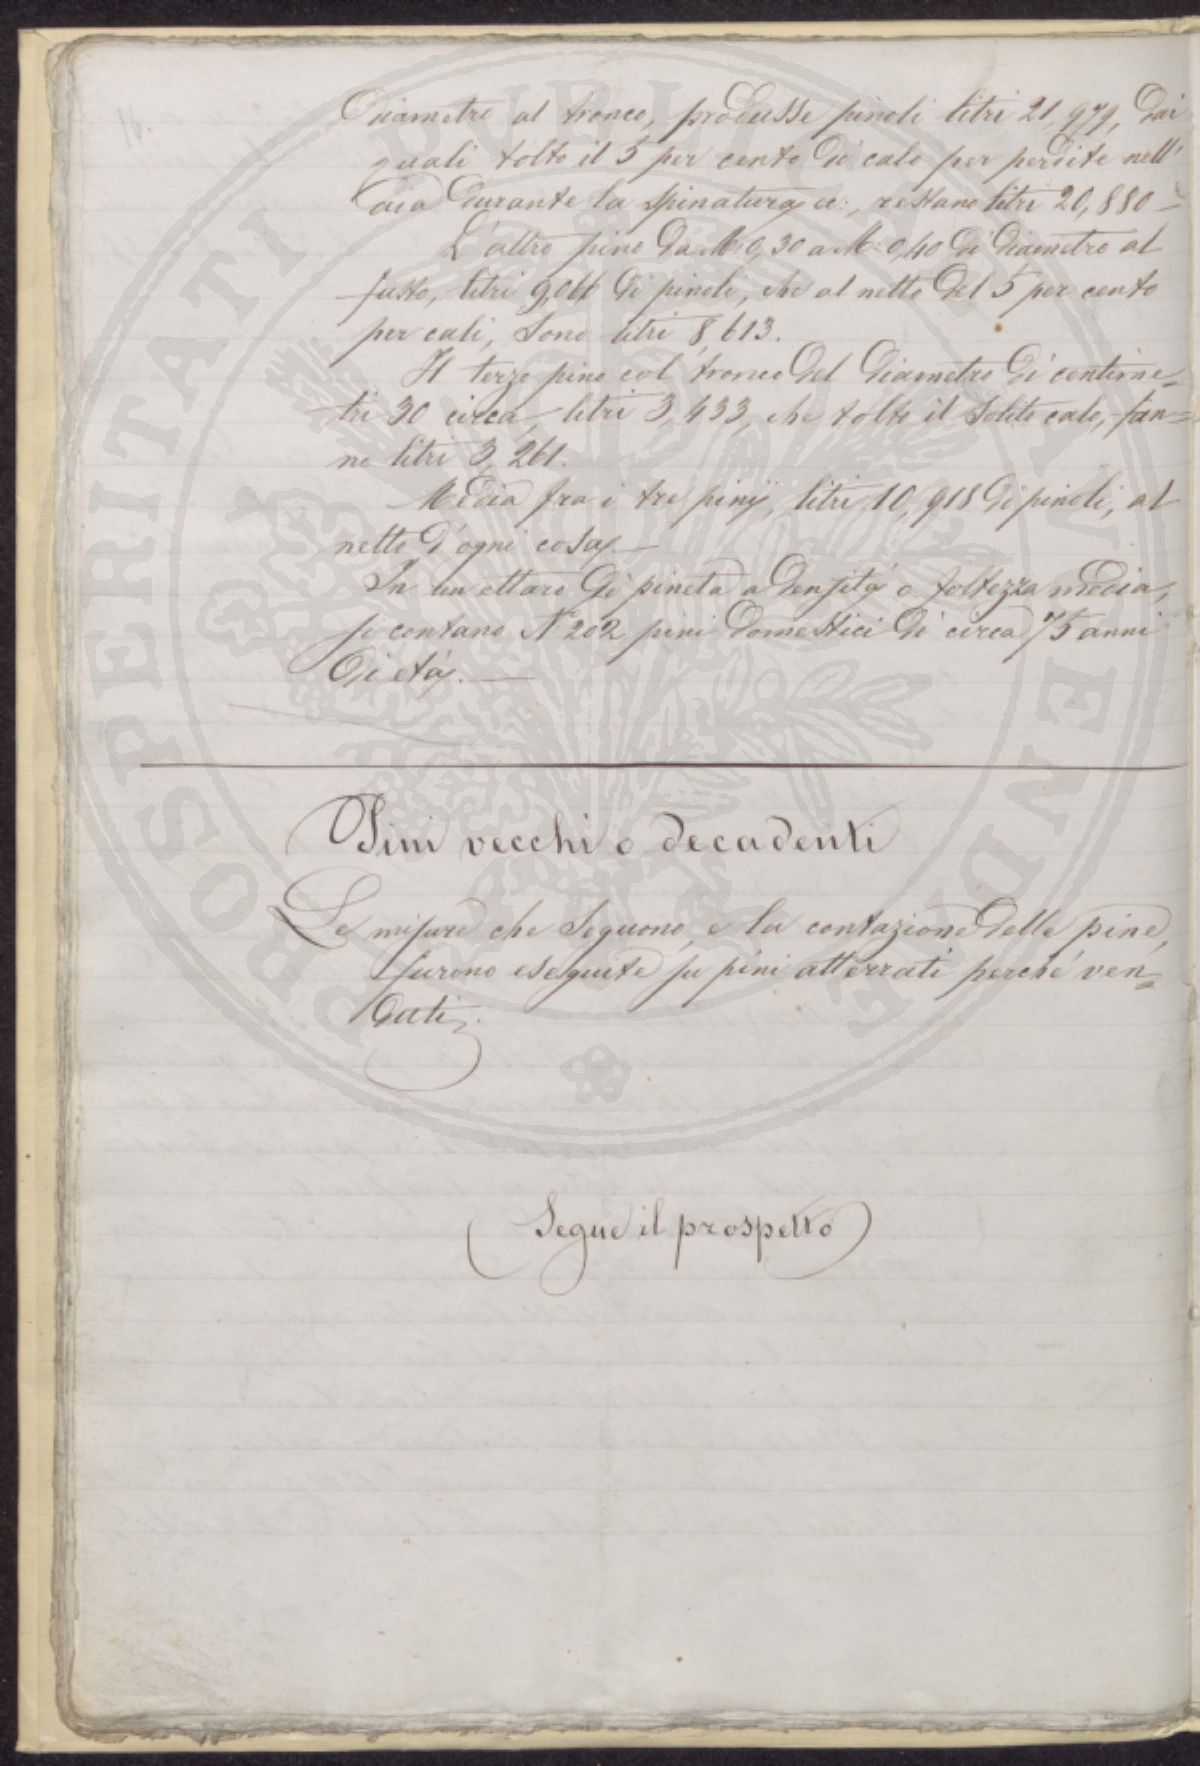 diametro al tronco, produsse pinoli litri 21,979, dai
quali tolto il 5 per cento di calo per perdite nell'
aia durante la spinatura ec:, restano litri 20,880 –
L'altro pino da M: 0,30 a M: 0,40 di diametro al
fusto, litri 9,066 di pinoli, che al netto del 5 per cento
per cali, sono litri 8,613.
Il terzo pino col tronco del diametro di centime=
tri 30 circa, litri 3,433, che tolto il solito calo, fan=
no litri 3,261.
Media fra i tre pini, litri 10,918 di pinoli, al
netto d'ogni cosa. —
In un ettaro di pineta a densità o foltezza media,
si contano N° 202 pini domestici di circa 75 anni
di età. —
Pini vecchi e decadenti
Le misure che seguono, e la contazione delle pine,
furono eseguite su pini atterrati perché ven=
duti.
(Segue il prospetto)
PROSPERITATI PUBLICAE AUGENDAE